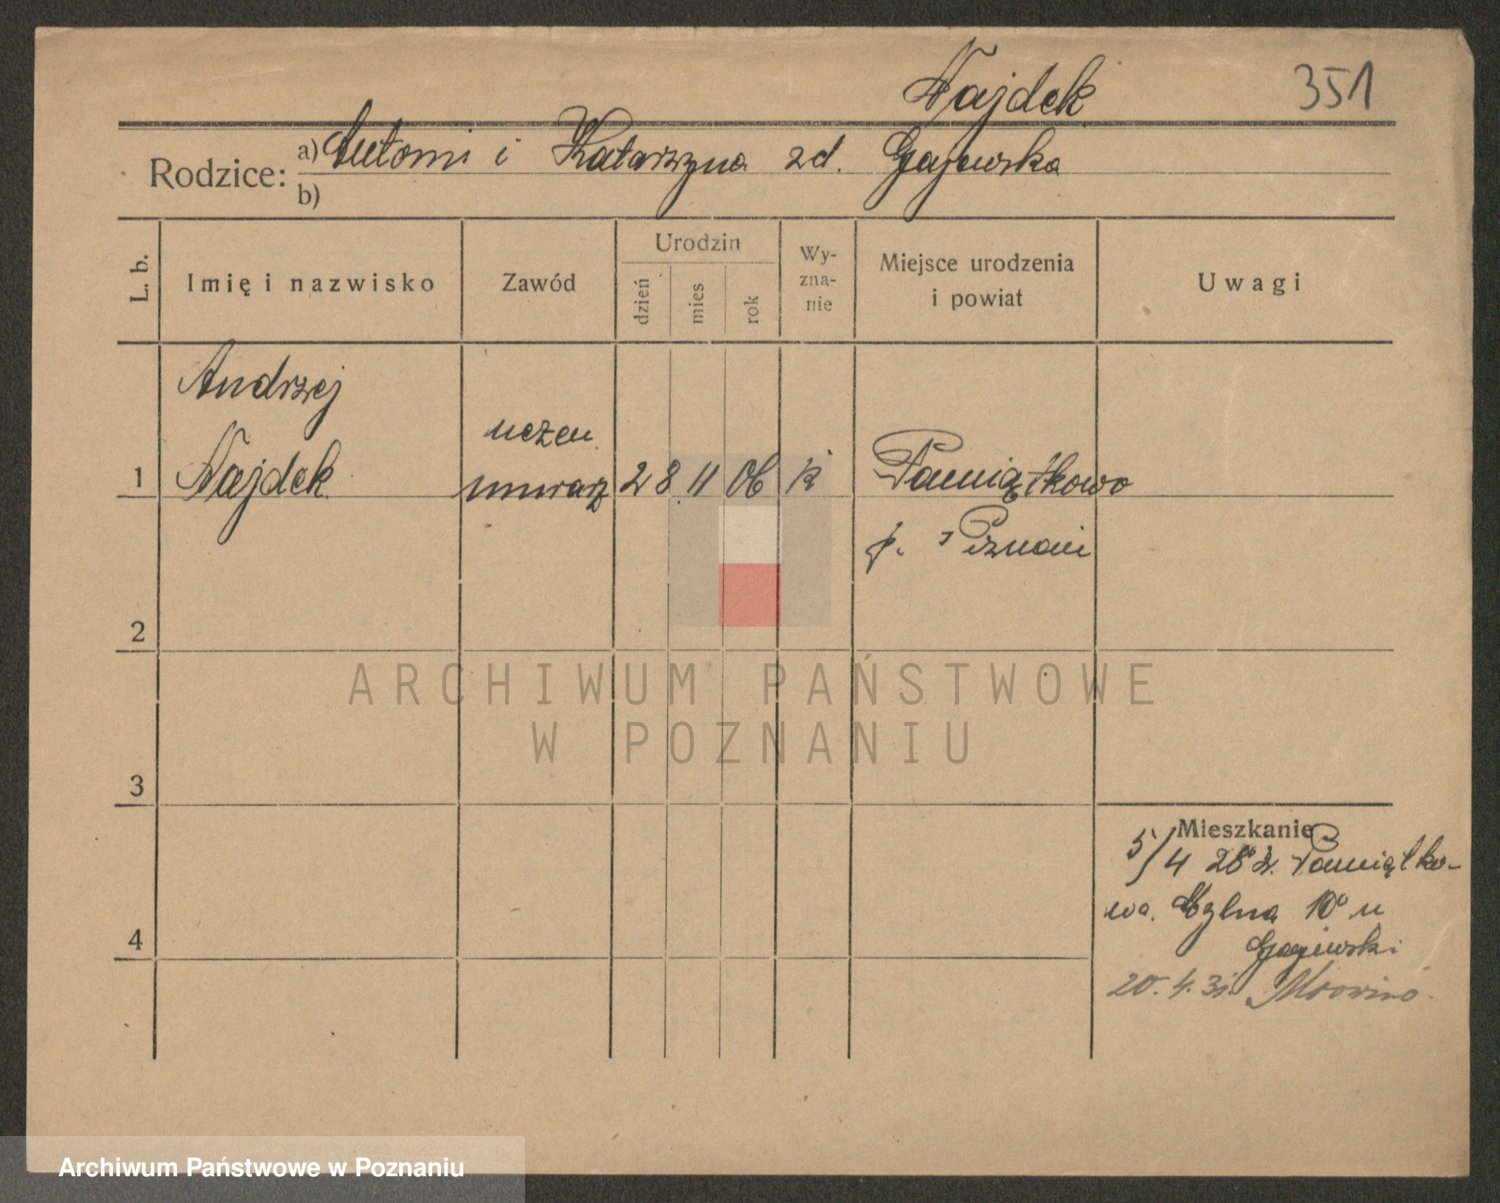 Najdek 351
Rodzice: a) Antoni i Katarzyna zd. Gajewska
b)
L. b.
Imię i nazwisko
Zawód
Urodzin
dzień
mies
rok
Wy-
zna-
nie
Miejsce urodzenia
i powiat
Uwagi
Andrzej
1 Najdek
uczeń
murarz
28 11 06 k
Pamiątkowo
p. Poznań
2
3
4
Mieszkanie
5/4 28 z. Pamiątko-
wa. Młyna 10 u
Gajewski
20. 4. 31
ARCHIWUM PAŃSTWOWE
W POZNANIU
Archiwum Państwowe w Poznaniu